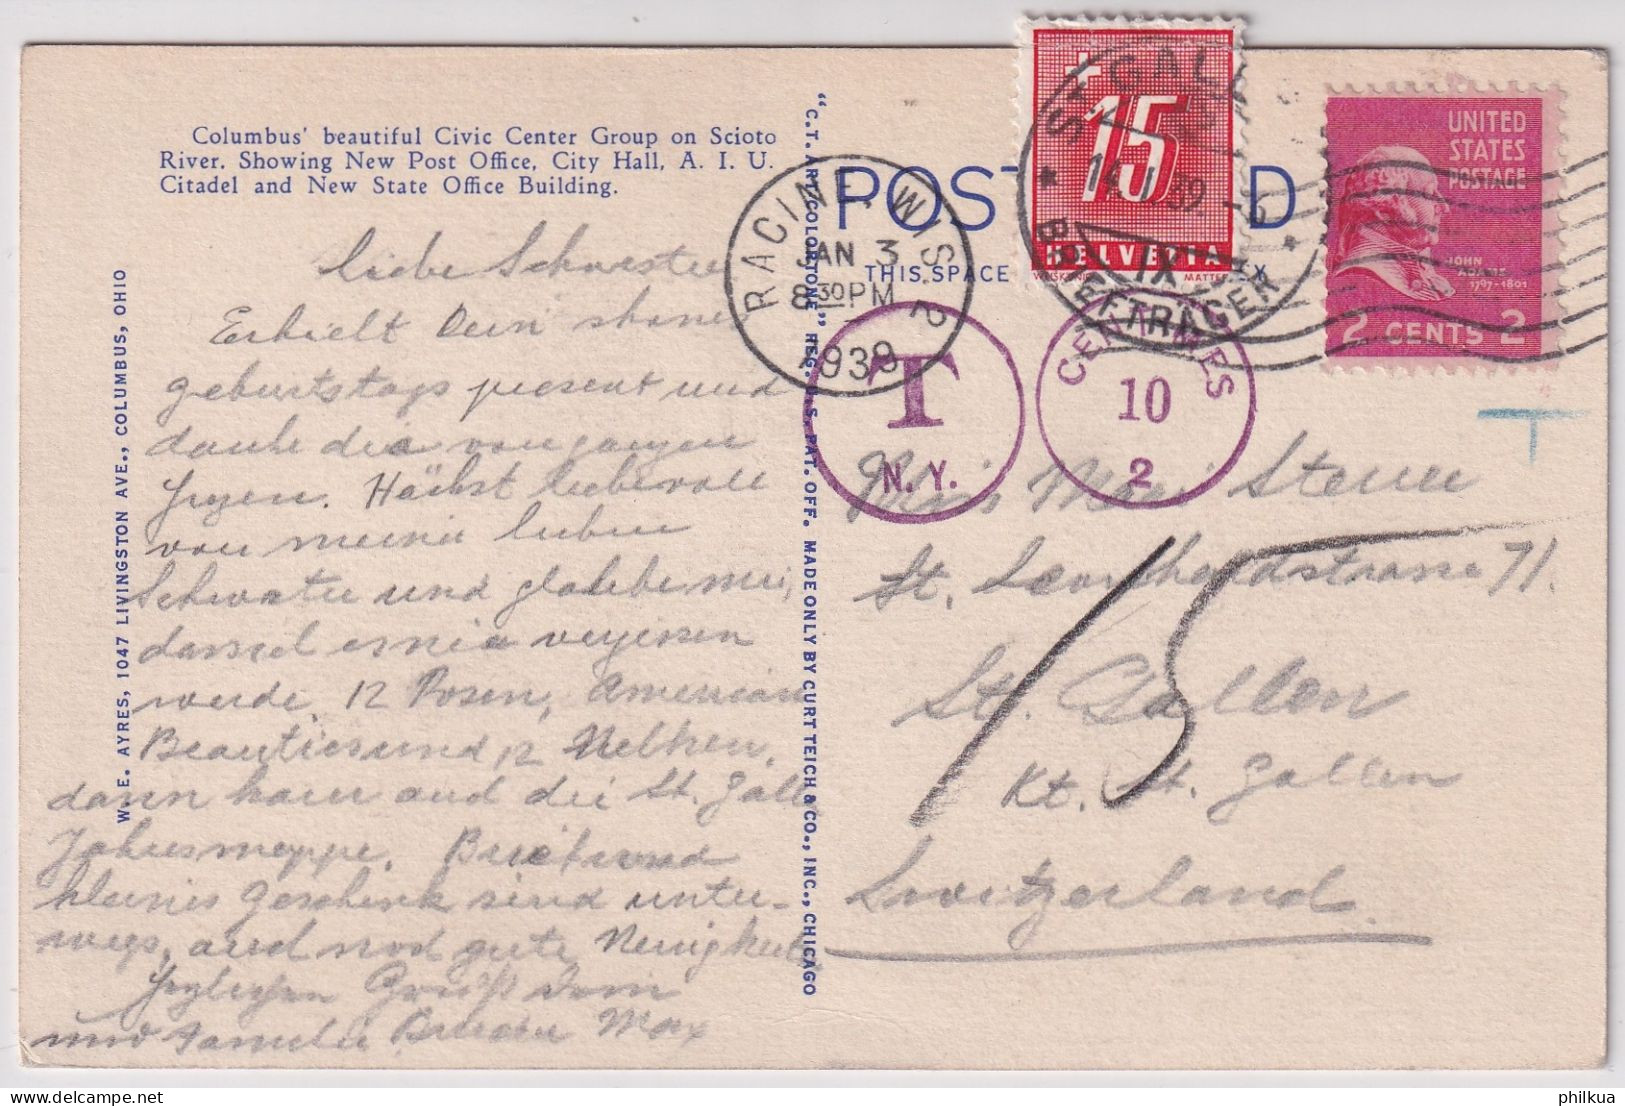 Columbus' beautiful Civic Center Group on Scioto
River. Showing New Post Office, City Hall, A. I. U.
Citadel and New State Office Building.
W. E. AYRES, 1047 LIVINGSTON AVE., COLUMBUS, OHIO
liebe Schwester
Erhielt Dein shones
geburtstags present und
danke dir von ganzen
Herzen. Höchst liebevoll
von meiner lieben
Schwester und glaube mir,
dass ich es nie vergessen
werde. 12 Rosen, American
Beauties und 12 Nelken,
dann kam auch die St. Galler
Jahresmappe. Brief und
kleines Geschenk sind unter-
wegs, und noch gute Neuigkeit
Herzlichen Gruß Dein
und Familie Bruder Max
"C. T. ART-COLORTONE" REG. U. S. PAT. OFF. MADE ONLY BY CURT TEICH & CO., INC., CHICAGO
POST D
THIS SPACE
RACINE, WIS. 2
JAN 3
8 30 PM
1939
+
15
HELVETIA
MATTER
ST. GALLEN
14. I. 39.
IX
BRIEFTRÄGER
UNITED
STATES
POSTAGE
JOHN
ADAMS
1797-1801
2 CENTS 2
T
N. Y.
CENTIMES
10
2
T
Miss
St. Leonhardstrasse 71.
15
St. Gallen
Kt. St. Gallen
Switzerland.
philkua